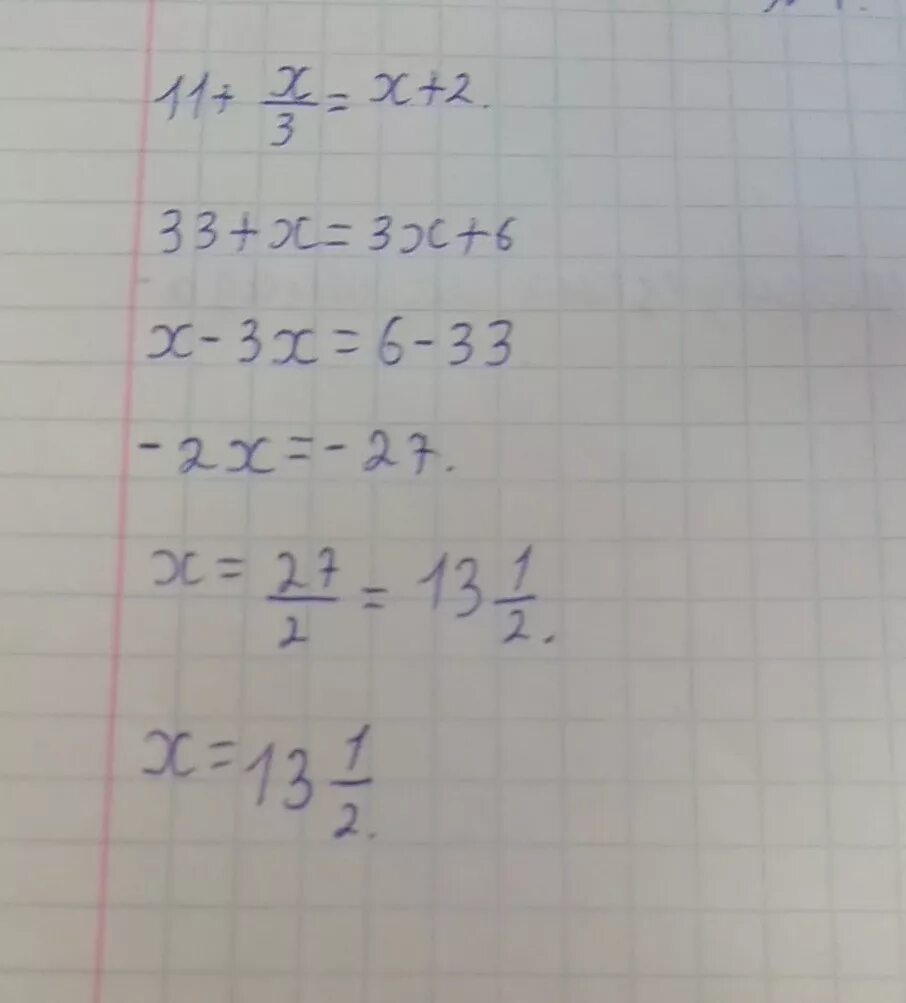 11+ x/3 = x+2.
33+x=3x+6
x-3x=6-33
-2x=-27.
x= 27/2 = 13 1/2.
x=13 1/2.